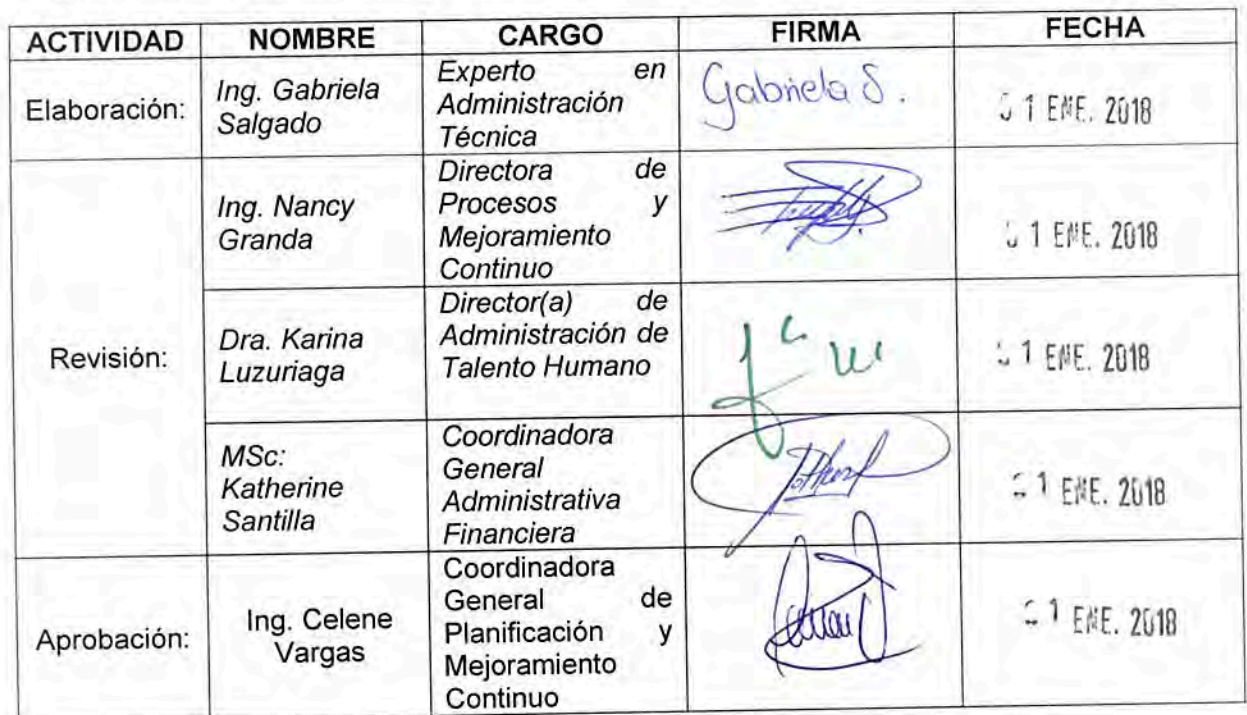 ACTIVIDAD NOMBRE CARGO FIRMA FECHA
Elaboración:
Ing. Gabriela
Salgado
Experto en
Administración
Técnica
Gabriela S.
1 ENE. 2018
Revisión:
Ing. Nancy
Granda
Directora de
Procesos y
Mejoramiento
Continuo
1 ENE. 2018
Dra. Karina
Luzuriaga
Director(a) de
Administración de
Talento Humano
1 ENE. 2018
MSc:
Katherine
Santilla
Coordinadora
General
Administrativa
Financiera
1 ENE. 2018
Aprobación:
Ing. Celene
Vargas
Coordinadora
General de
Planificación y
Mejoramiento
Continuo
1 ENE. 2018